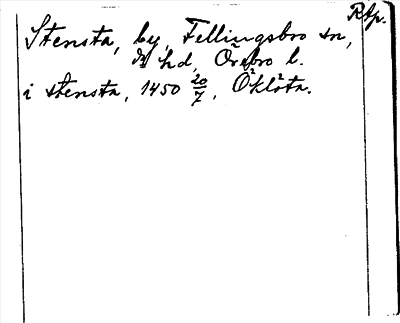 RAp.
Stensta, by, Fellingsbro sn,
hd, Örebro l.
i stensta, 1450 20/7, Öklösta.